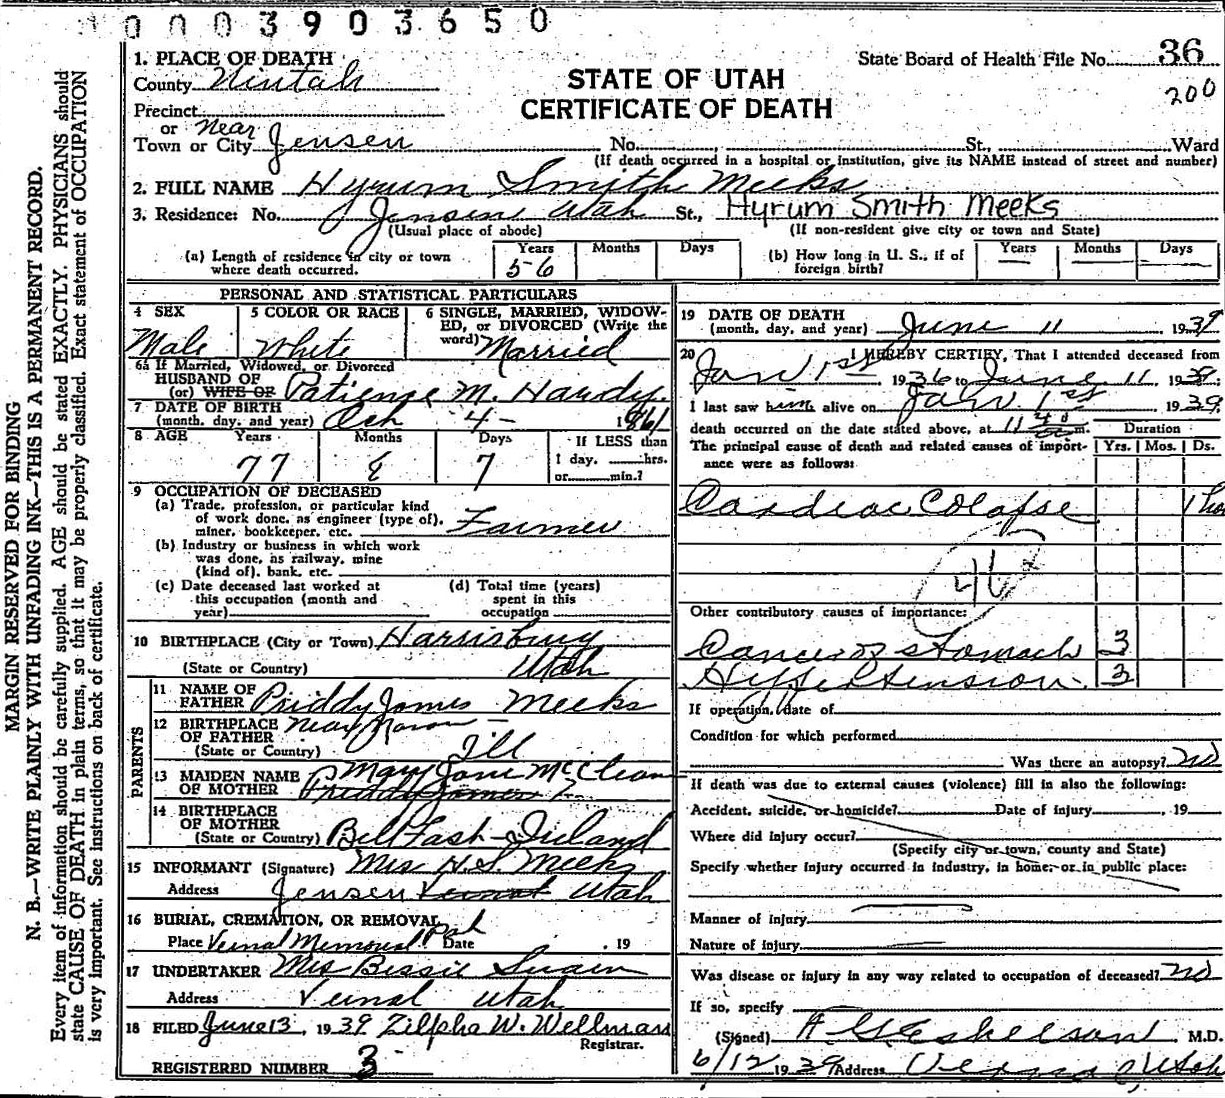 0003903650
1. PLACE OF DEATH
State Board of Health File No. 36
County Uintah
STATE OF UTAH
200
Precinct
CERTIFICATE OF DEATH
or near
Town or City Jensen No. St., Ward
(If death occurred in a hospital or institution, give its NAME instead of street and number)
2. FULL NAME Hyrum Smith Meeks
3. Residence: No. Jensen Utah St., Hyrum Smith Meeks
(Usual place of abode) (If non-resident give city or town and State)
(a) Length of residence in city or town where death occurred. Years 56 Months Days
(b) How long in U. S., if of foreign birth? Years Months Days
PERSONAL AND STATISTICAL PARTICULARS
4 SEX Male
5 COLOR OR RACE White
6 SINGLE, MARRIED, WIDOWED, or DIVORCED (Write the word) Married
6a If Married, Widowed, or Divorced
HUSBAND OF
(or) WIFE OF Patience M. Handy.
7 DATE OF BIRTH
(month, day, and year) Och 4 - 1861
8 AGE Years 77 Months 8 Days 7
If LESS than
1 day, hrs.
or min.?
9 OCCUPATION OF DECEASED
(a) Trade, profession, or particular kind
of work done, as engineer (type of),
miner, bookkeeper, etc. Farmer
(b) Industry or business in which work
was done, as railway, mine
(kind of), bank, etc.
(c) Date deceased last worked at
this occupation (month and
year)
(d) Total time (years)
spent in this
occupation
10 BIRTHPLACE (City or Town) Harrisburg
(State or Country) Utah
PARENTS
11 NAME OF
FATHER Priddy James Meeks
12 BIRTHPLACE
OF FATHER near
(State or Country) Ill
13 MAIDEN NAME
OF MOTHER Mary Jane McClean
14 BIRTHPLACE
OF MOTHER
(State or Country) Bell Fast - Ireland
15 INFORMANT (Signature) Mrs H.S. Meeks
Address Jensen Vernal Utah
16 BURIAL, CREMATION, OR REMOVAL
Place Vernal Memorial Park Date , 19
17 UNDERTAKER Mrs Bessie Swain
Address Vernal Utah
18 FILED June 13, 1939 Zilpha W. Wellman
Registrar.
REGISTERED NUMBER 3
19 DATE OF DEATH
(month, day, and year) June 11 1939
20 I HEREBY CERTIFY, That I attended deceased from
Jan 1st 1936 to June 11 1939
I last saw him alive on Jan 1st 1939
death occurred on the date stated above, at 11 m.
Duration
The principal cause of death and related causes of importance were as follows:
Yrs. Mos. Ds.
Cardiac Colapse 1 ho
46
Other contributory causes of importance:
Cancer of stomach 3
Hyppertension 3
If operation, date of
Condition for which performed
Was there an autopsy? no
If death was due to external causes (violence) fill in also the following:
Accident, suicide, or homicide? Date of injury , 19
Where did injury occur?
(Specify city or town, county and State)
Specify whether injury occurred in industry, in home, or in public place:
Manner of injury
Nature of injury
Was disease or injury in any way related to occupation of deceased? no
If so, specify
(Signed) Eskelson M.D.
6/12 1939 Address Vernal, Utah
MARGIN RESERVED FOR BINDING
N. B.—WRITE PLAINLY WITH UNFADING INK—THIS IS A PERMANENT RECORD.
Every item of information should be carefully supplied. AGE should be stated EXACTLY. PHYSICIANS should
state CAUSE OF DEATH in plain terms, so that it may be properly classified. Exact statement of OCCUPATION
is very important. See instructions on back of certificate.